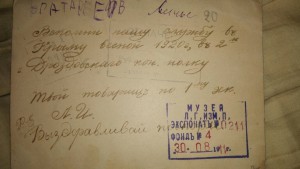 БРАТАНЕЕВ Личье 20
Вспомни нашу службу в
Крыму весной 1920 г, въ 2ом
Дроздовском кон. полку
Твой товарищ по 1му эк.
А.И.
Выздоравливай
МУЗЕЯ
Л.Г. ИЗМ. П.
ЭКСПОНАТЫ № 0211
ФОНДЪ № 4
30. 08.